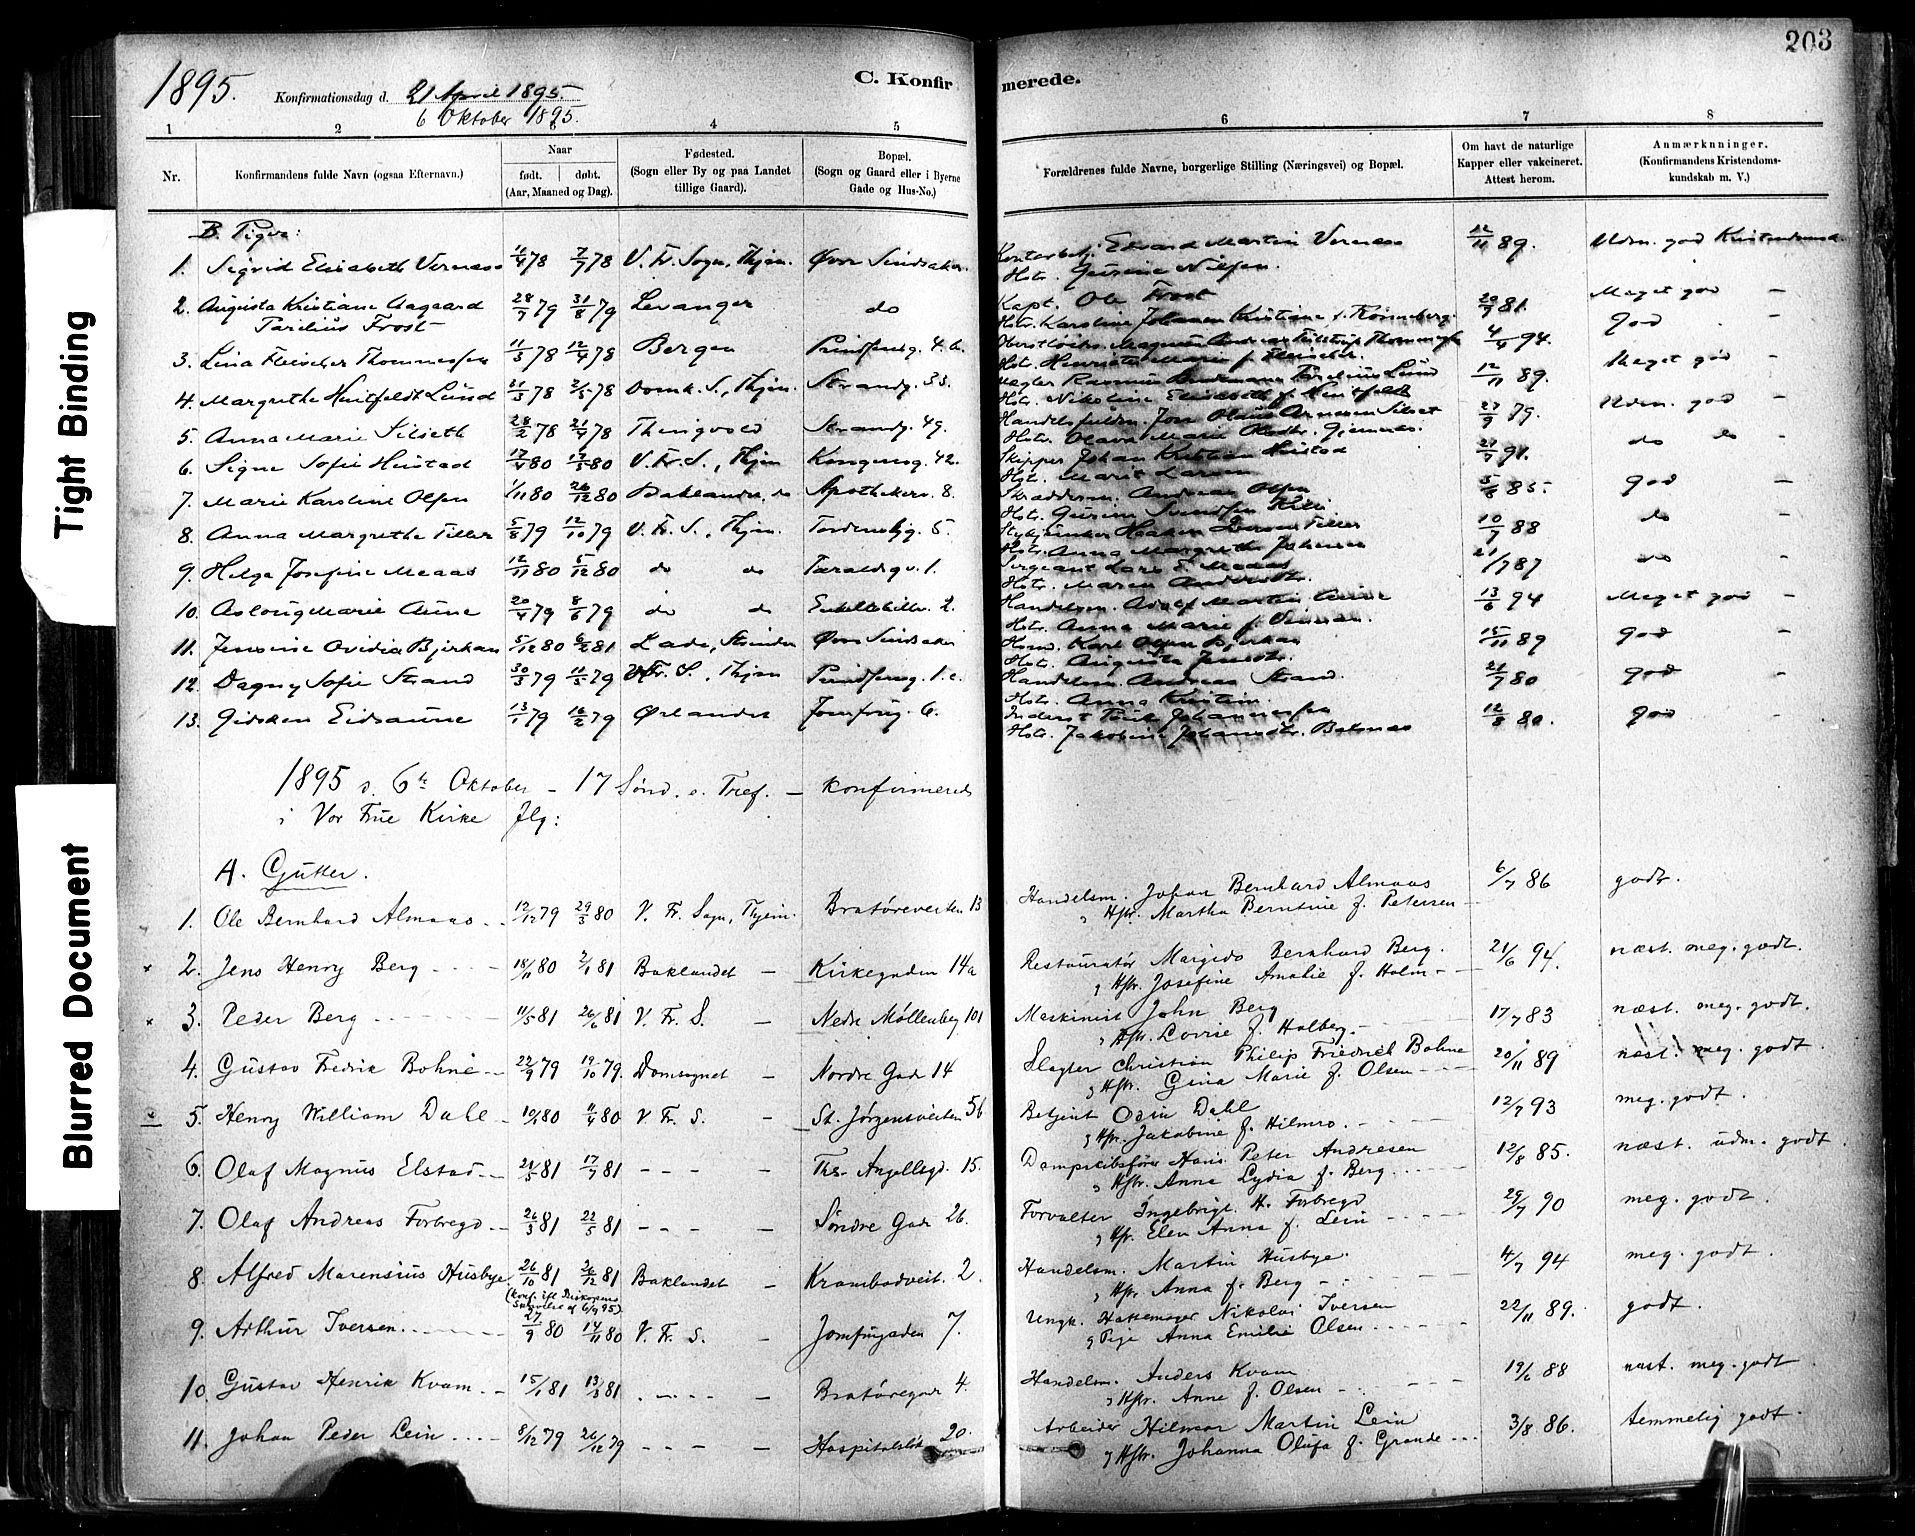 203
1895.
C. Konfirmerede.
Konfirmationsdag d. 21 April 1895
6 Oktober 1895.
1 2 3 4 5 6 7 8
Nr.
Konfirmandens fulde Navn (ogsaa Efternavn).
Naar
født. døbt.
(Aar, Maaned og Dag).
Fødested.
(Sogn eller By og paa Landet
tillige Gaard).
Bopæl.
(Sogn og Gaard eller i Byerne
Gade og Hus-No.)
Forældrenes fulde Navne, borgerlige Stilling (Næringsvei) og Bopæl.
Om havt de naturlige
Kapper eller vakcineret.
Attest herom.
Anmærkninger.
(Konfirmandens Kristendoms-
kundskab m. V.)
Tight Binding
Blurred Document
B. Piger:
1. Sigrid Elisabeth Vernæs 11/4 78 7/7 78 V. Fr. Sogn, Thjem. Øvre Sindsaker Edvard Martin Vernæs 12/11 89. Udm. god
Hstr. Gurine Nilsen.
2. Augusta Kristiane Aagaard 28/7 79 31/8 79 Levanger do Kapt. Ole Frost 20/9 81. Meget god
Parelius Frost Hstr. Karoline Johanna Kristiane f. Rønneberg
3. Lina Fleischer Thommesen 11/3 78 12/4 78 Bergen 4/4 94. god
Hstr. Henriette Marie f. Fleischer.
4. Margrethe Huitfeldt Lund 21/3 78 2/5 78 Domk. S., Thjem. Strandg. 33. Lund 12/11 89. Meget god
Hstr. Nikoline Elisabeth f. Huitfeldt
5. Anna Marie Silseth 28/2 78 21/4 78 Thingvold Strandg. 49. 27/9 79. Udm. god
Hstr. Olava Marie
6. Signe Sofie Hustad 17/4 80 17/5 80 V. Fr. S., Thjem Kongensg. 42. Skipper Johan Kristian Hustad 21/7 91. do do
Hstr. Marit Larsen
7. Marie Karoline Olsen 1/11 80 26/12 80 Baklandet, do Apothekerv. 8. Skrædderm. Andreas Olsen 5/8 85. god
Hstr. Gurine
8. Anna Margrethe Tiller 5/8 79 12/10 79 V. Fr. S., Thjem. Tordenskj.g. 5. Haakon Iversen Tiller 10/7 88 do
Hstr. Anna Margrethe Johansen
9. Helga Josefine Maaas 12/11 80 5/12 80 do do 1. Sergeant Lars E. Maaas 21/7 87 do
Hstr. Maren Andersdtr.
10. Aslaug Marie Aune 20/4 79 8/6 79 do do 2. Handelsm. Adolf Martin Aune 13/6 94 Meget god
Hstr. Anna Marie f.
11. Jensine Ovidia Bjerkan 5/12 80 6/2 81 Lade, Strinden Øvre Sindsaker Karl Olsen Bjerkan 15/11 89 god
Hstr. Augusta Jensdtr.
12. Dagny Sofie Strand 30/3 79 11/5 79 V. Fr. S., Thjem Prindsensg. 1.c. Handelsm. Andreas Strand. 21/7 80 god
Hstr. Anna Kristine
13. Gidsken Eidsaune 13/1 79 16/2 79 Ørlandet Jomfrug. 6. 12/8 80. god
Hstr. Jakobine Johannsdtr. Botnæs
1895 d. 6te Oktober – 17 Sønd. e. Tref. – konfirmered
i Vor Frue Kirke flg:
A. Gutter.
1. Ole Bernhard Almaas 12/12 79 29/3 80 V. Fr. Sogn, Thjem. Bratøreveiten 13 Handelsm. Johan Bernhard Almaas 6/7 86 godt.
" Hstr. Martha Berntine f. Petersen
× 2. Jens Henry Berg 18/11 80 2/1 81 Baklandet – Kirkegaden 14a Restauratør Margido Bernhard Berg. 21/6 94. næst. meg. godt.
" Hstr. Josefine Amalie f. Holm
× 3. Peder Berg 11/5 81 26/6 81 V. Fr. S. – Nedre Møllenberg 101 Maskinist John Berg 17/7 83 næst. meg. godt.
" Hstr. Lovise f. Holberg.
4. Gustav Fredrik Bohne 22/9 79 19/10 79. Domsognet – Nordre Gade 14 Slagter Christian Philip Friedrich Bohne 20/11 89 næst. meg. godt.
" Hstr. Gina Marie f. Olsen
× 5. Henry William Dahl 10/1 80 11/4 80 V. Fr. S. – St. Jørgensveiten 5b Betjent Odin Dahl 12/7 93 meg. godt.
" Hstr. Jakobine f. Hilmro.
6. Olaf Magnus Elstad 21/5 81 17/7 81 – – – – Ths. Angellsgd. 15. Dampskibsfører Hans Peter Andresen 12/8 85. næst. udm. godt.
" Hstr. Anna Lydia f. Berg
7. Olaf Andreas Forbregd 26/3 81 22/5 81 – – – – Søndre Gade 26. Forvalter Ingebrigt H. Forbregd 29/7 90 meg. godt.
" Hstr. Elen Anna f. Lein
8. Alfred Marensius Husbye 26/10 81 26/12 81 Baklandet – Krambodveit. 2. Handelsm. Martin Husbye. 4/7 94 meg. godt.
(konf. ifl. Biskopens " Hstr. Anna f. Berg
Skrivelse af 6/9 95).
9. Arthur Iversen 27/9 80 14/11 80 V. Fr. S. – Jomfrugaden 7. Ungk. Hattemager Nikolai Iversen 22/11 89. godt.
" Pige Anna Emilie Olsen
10. Gustav Henrik Kvam 15/1 81 13/3 81 – – – – Bratøregade 4. Handelsm. Anders Kvam 19/6 88 næst. meg. godt
" Hstr. Anne f. Olsen
11. Johan Peder Lein 8/12 79 26/12 79 – – – – 20. Arbeider Hilmar Martin Lein 3/8 86. temmelig godt.
" Hstr. Johanna Olufa f. Grande